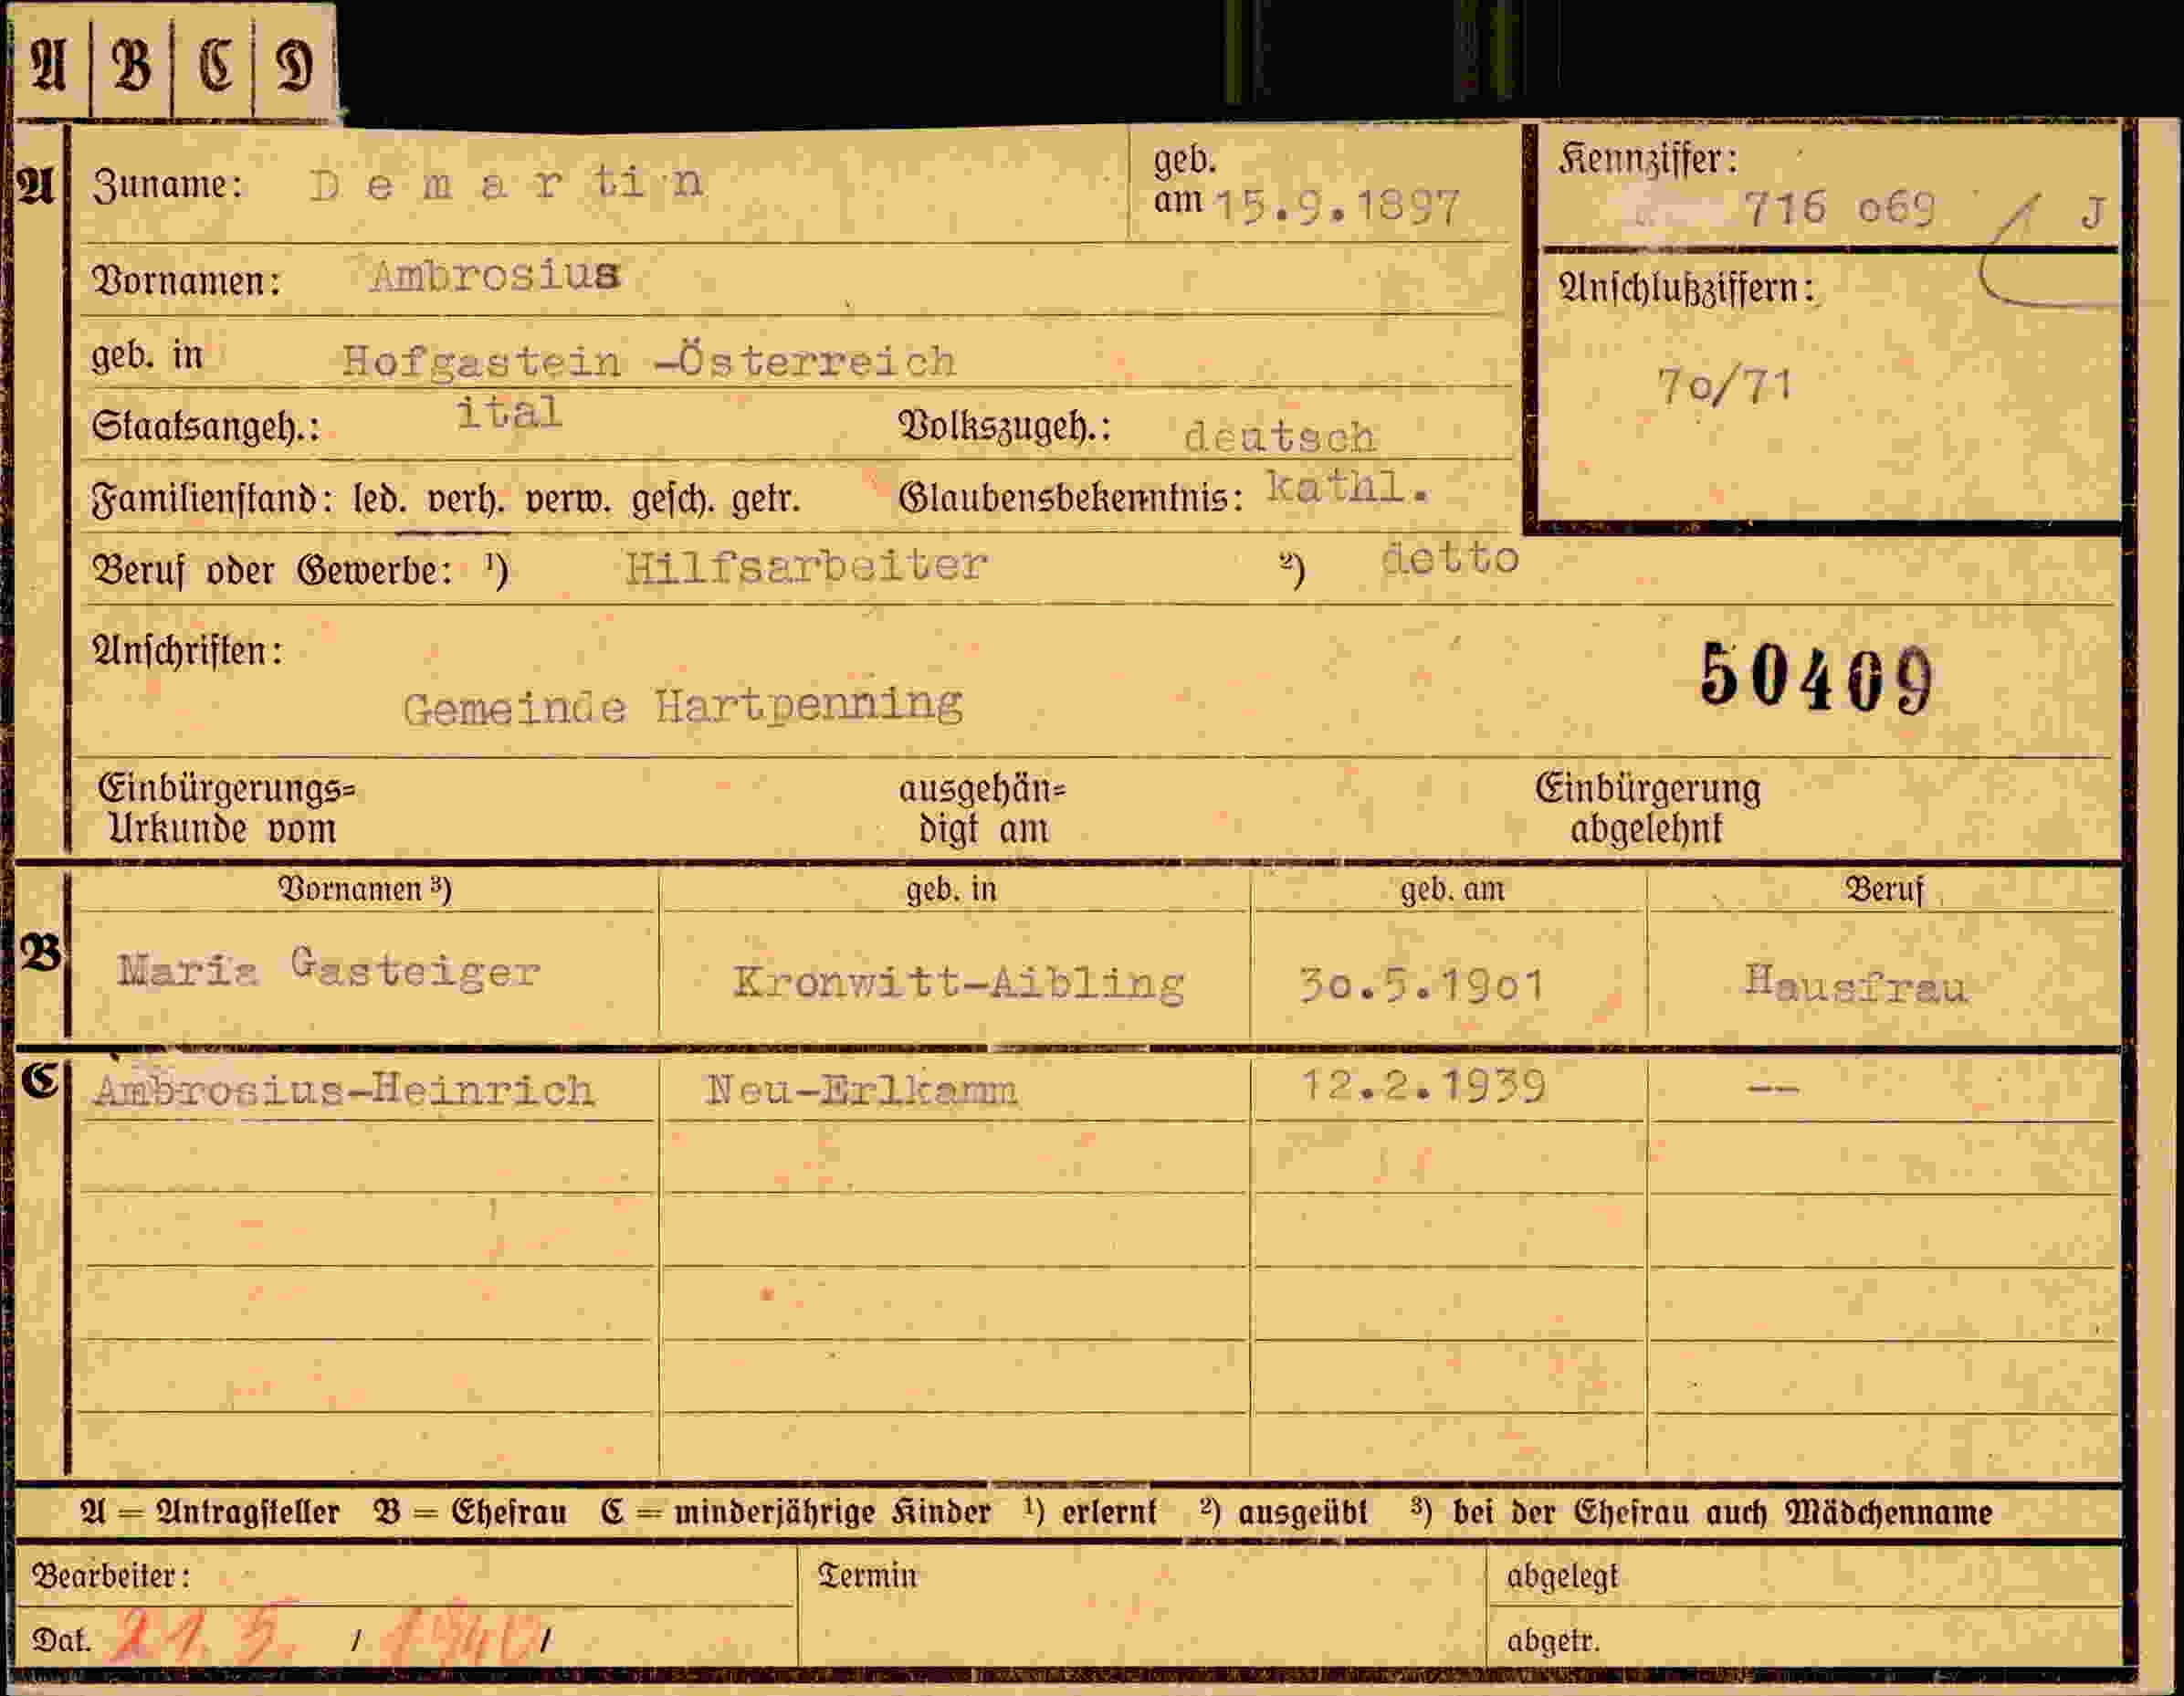 A | B | C | D
A Zuname: Demartin geb. am 15.9.1897 Kennziffer: 716 o69 / J
Vornamen: Ambrosius Anschlußziffern:
geb. in Hofgastein -Österreich 7o/71
Staatsangeh.: ital Volkszugeh.: deutsch
Familienstand: led. verh. verw. gesch. getr. Glaubensbekenntnis: kathl.
Beruf oder Gewerbe: ¹) Hilfsarbeiter ²) detto
Anschriften: 50409
Gemeinde Hartpenning
Einbürgerungs= ausgehän= Einbürgerung
Urkunde vom digt am abgelehnt
Vornamen ³) geb. in geb. am Beruf
B Maria Gasteiger Kronwitt-Aibling 3o.5.19o1 Hausfrau
C Ambrosius-Heinrich Neu-Erlkamm 12.2.1939 --
A = Antragsteller B = Ehefrau C = minderjährige Kinder ¹) erlernt ²) ausgeübt ³) bei der Ehefrau auch Mädchenname
Bearbeiter: Termin abgelegt
Dat. 21.5. / 1940 / abgetr.